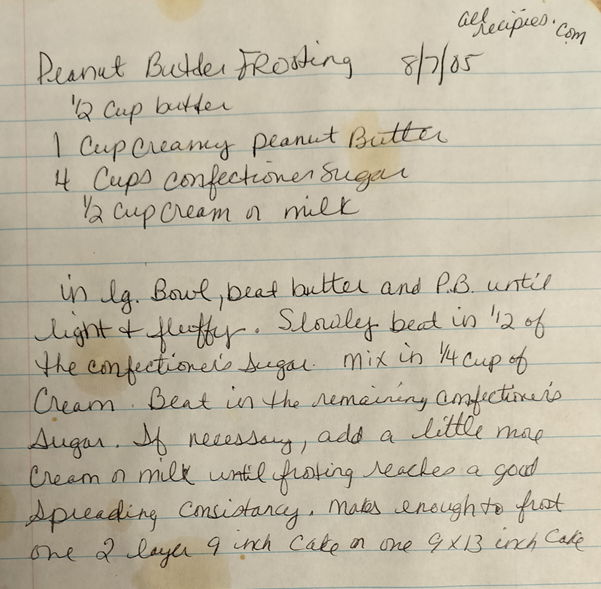 allrecipies.com
Peanut Butter Frosting 8/7/05
1/2 cup butter
1 Cup Creamy Peanut Butter
4 Cups confectioner Sugar
1/2 Cup Cream or milk
in lg. Bowl, beat butter and P.B. until
light & fluffy. Slowley beat in 1/2 of
the confectioner's sugar. Mix in 1/4 cup of
Cream. Beat in the remaining confectioner's
sugar. If necessary, add a little more
Cream or milk until frosting reaches a good
Spreading Consistancy. Makes enough to frost
one 2 layer 9 inch Cake or one 9x13 inch Cake